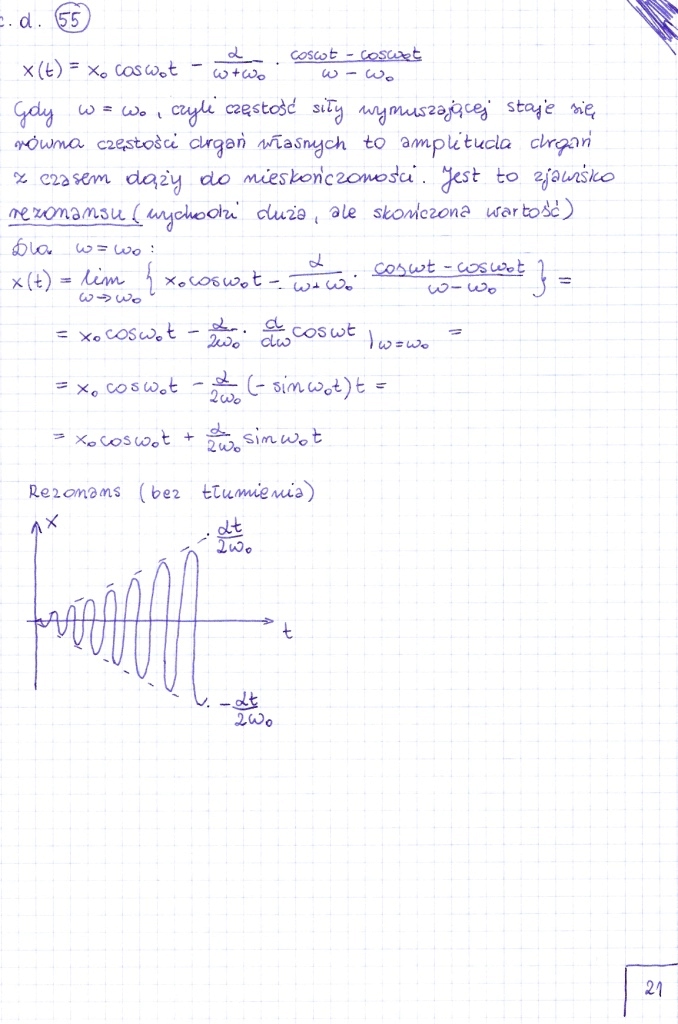 c. d. 55
x(t) = x₀ cosω₀t − α/(ω+ω₀) · (cosωt − cosω₀t)/(ω − ω₀)
Gdy ω = ω₀, czyli częstość siły wymuszającej staje się
równa częstości drgań własnych to amplituda drgań
z czasem dąży do nieskończoności. Jest to zjawisko
rezonansu (wychodzi duża, ale skończona wartość)
Dla ω = ω₀ :
x(t) = lim ω→ω₀ { x₀cosω₀t − α/(ω+ω₀) · (cosωt − cosω₀t)/(ω−ω₀) } =
= x₀cosω₀t − α/2ω₀ · d/dω cosωt |ω=ω₀ =
= x₀ cosω₀t − α/2ω₀ (−sinω₀t) t =
= x₀cosω₀t + α/2ω₀ sinω₀t
Rezonans (bez tłumienia)
x
αt/2ω₀
t
−αt/2ω₀
21